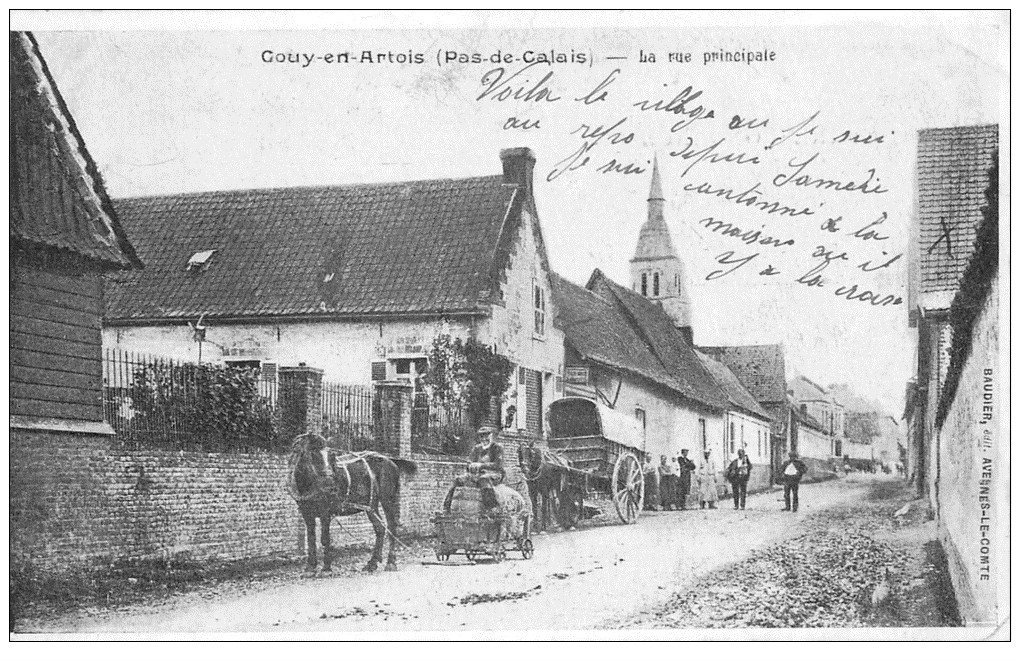 Gouy-en-Artois (Pas-de-Calais) — La rue principale
Voila le village au Je sui
au repo depui Samedie
Je sui cantonné a la
maison au il
y a la croix
X
BAUDIER, édit. AVESNES-LE-COMTE